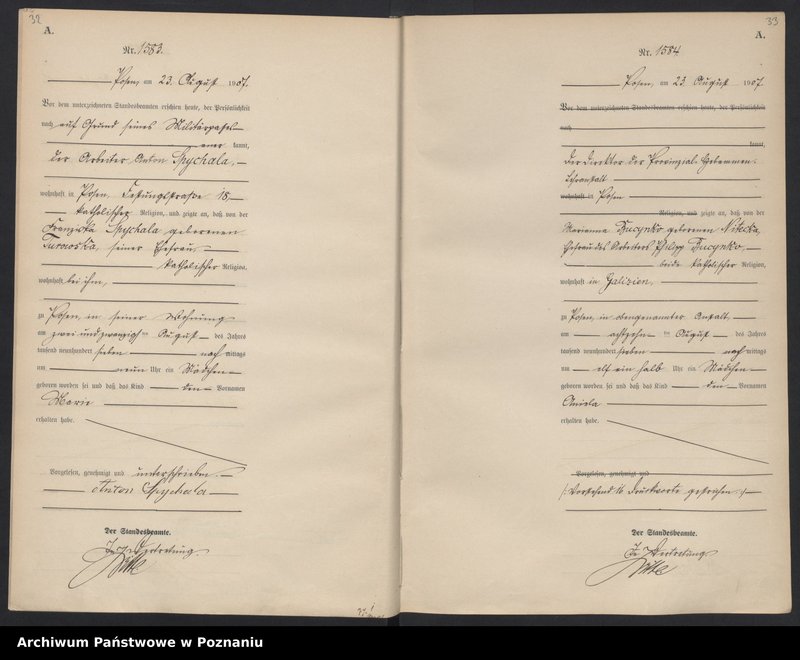 32
A.
Nr. 1583.
Posen, am 23. August 1907.
Vor dem unterzeichneten Standesbeamten erschien heute, der Persönlichkeit
nach auf Grund seines Militärpasses
aner kannt,
der Arbeiter Anton Spychala,
wohnhaft in Posen, Festungsstraße 18,
katholischer Religion, und zeigte an, daß von der
Franziska Spychala geborenen
seiner Ehefrau,
katholischer Religion,
wohnhaft bei ihm,
zu Posen, in seiner Wohnung
am zwei und zwanzigsten August des Jahres
tausend neunhundert sieben nach mittags
um neun Uhr ein Mädchen
geboren worden sei und daß das Kind den Vornamen
Marie
erhalten habe.
Vorgelesen, genehmigt und unterschrieben.
Anton Spychala
Der Standesbeamte.
In Vertretung
33
A.
Nr. 1584.
Posen, am 23. August 1907.
Vor dem unterzeichneten Standesbeamten erschien heute, der Persönlichkeit
nach
kannt,
Der Direktor der Provinzial-Hebammen-
Lehranstalt
wohnhaft in Posen
Religion, und zeigte an, daß von der
Marianna geborenen
Ehefrau des Arbeiters
beide katholischer Religion,
wohnhaft in Galizien,
zu Posen, in obengenannter Anstalt,
am achtzehnten August des Jahres
tausend neunhundert sieben nach mittags
um elf ein halb Uhr ein Mädchen
geboren worden sei und daß das Kind den Vornamen
Aniela
erhalten habe.
Vorgelesen, genehmigt und
Vorstehend 16 Druckworte gestrichen.
Der Standesbeamte.
In Vertretung
Archiwum Państwowe w Poznaniu